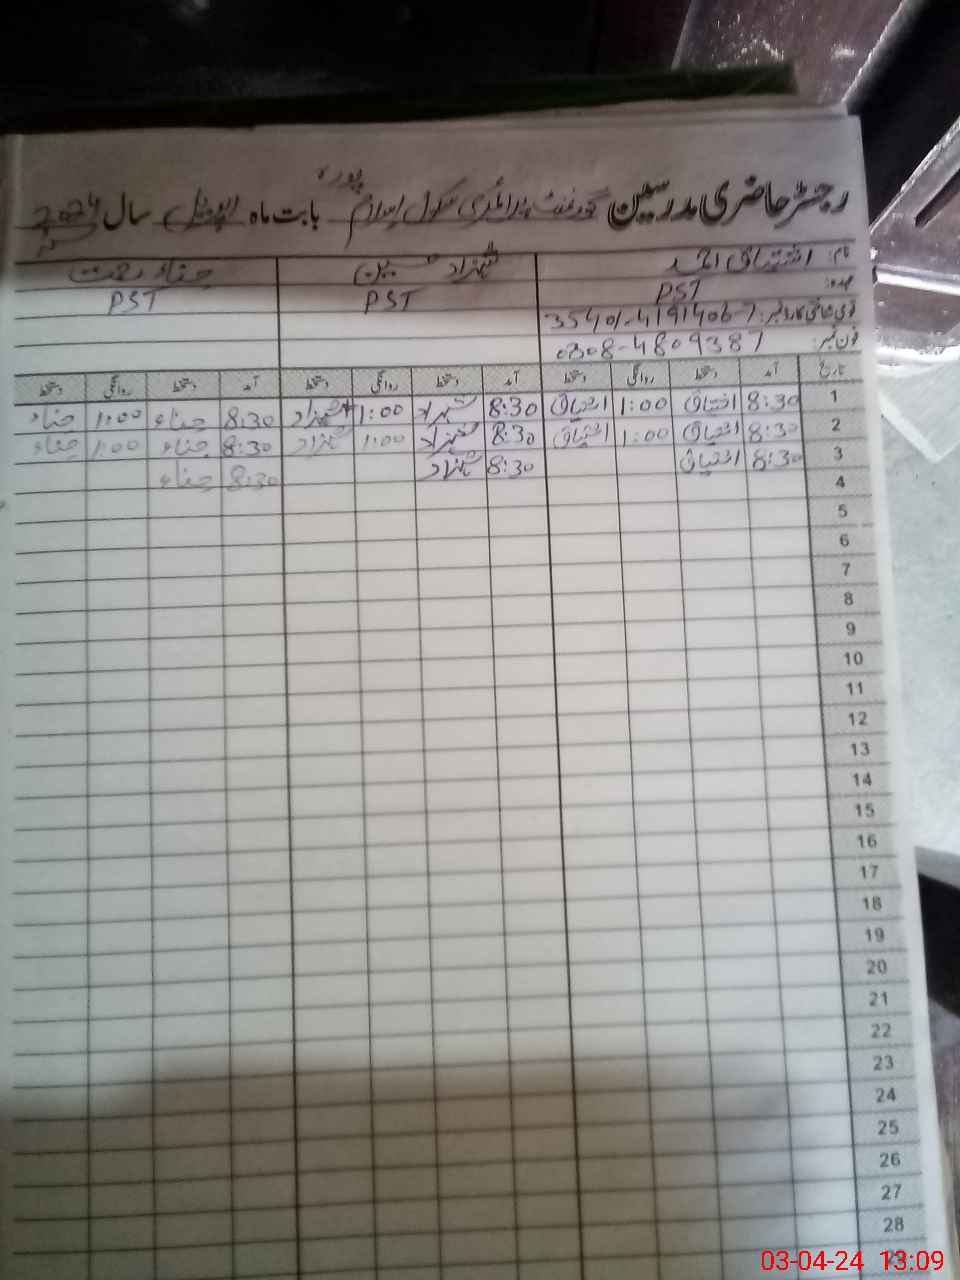 رجسٹر حاضری مدرسین گورنمنٹ پرائمری سکول اسلام پورہ بابت ماہ اپریل سال 2024
نام: اشتیاق احمد شہزاد حسین
عہدہ: PST PST PST
قومی شناختی کارڈ نمبر: 35401-4191406-7
فون نمبر: 0308-4809387
تاریخ آمد دستخط روانگی دستخط آمد دستخط روانگی دستخط آمد دستخط روانگی دستخط
1 8:30 اشتیاق 1:00 اشتیاق 8:30 شہزاد 1:00 شہزاد 8:30 حناء 1:00 حناء
2 8:30 اشتیاق 1:00 اشتیاق 8:30 شہزاد 1:00 شہزاد 8:30 حناء 1:00 حناء
3 8:30 اشتیاق 8:30 شہزاد 8:30 حناء
4
5
6
7
8
9
10
11
12
13
14
15
16
17
18
19
20
21
22
23
24
25
26
27
28
29
03-04-24 13:09